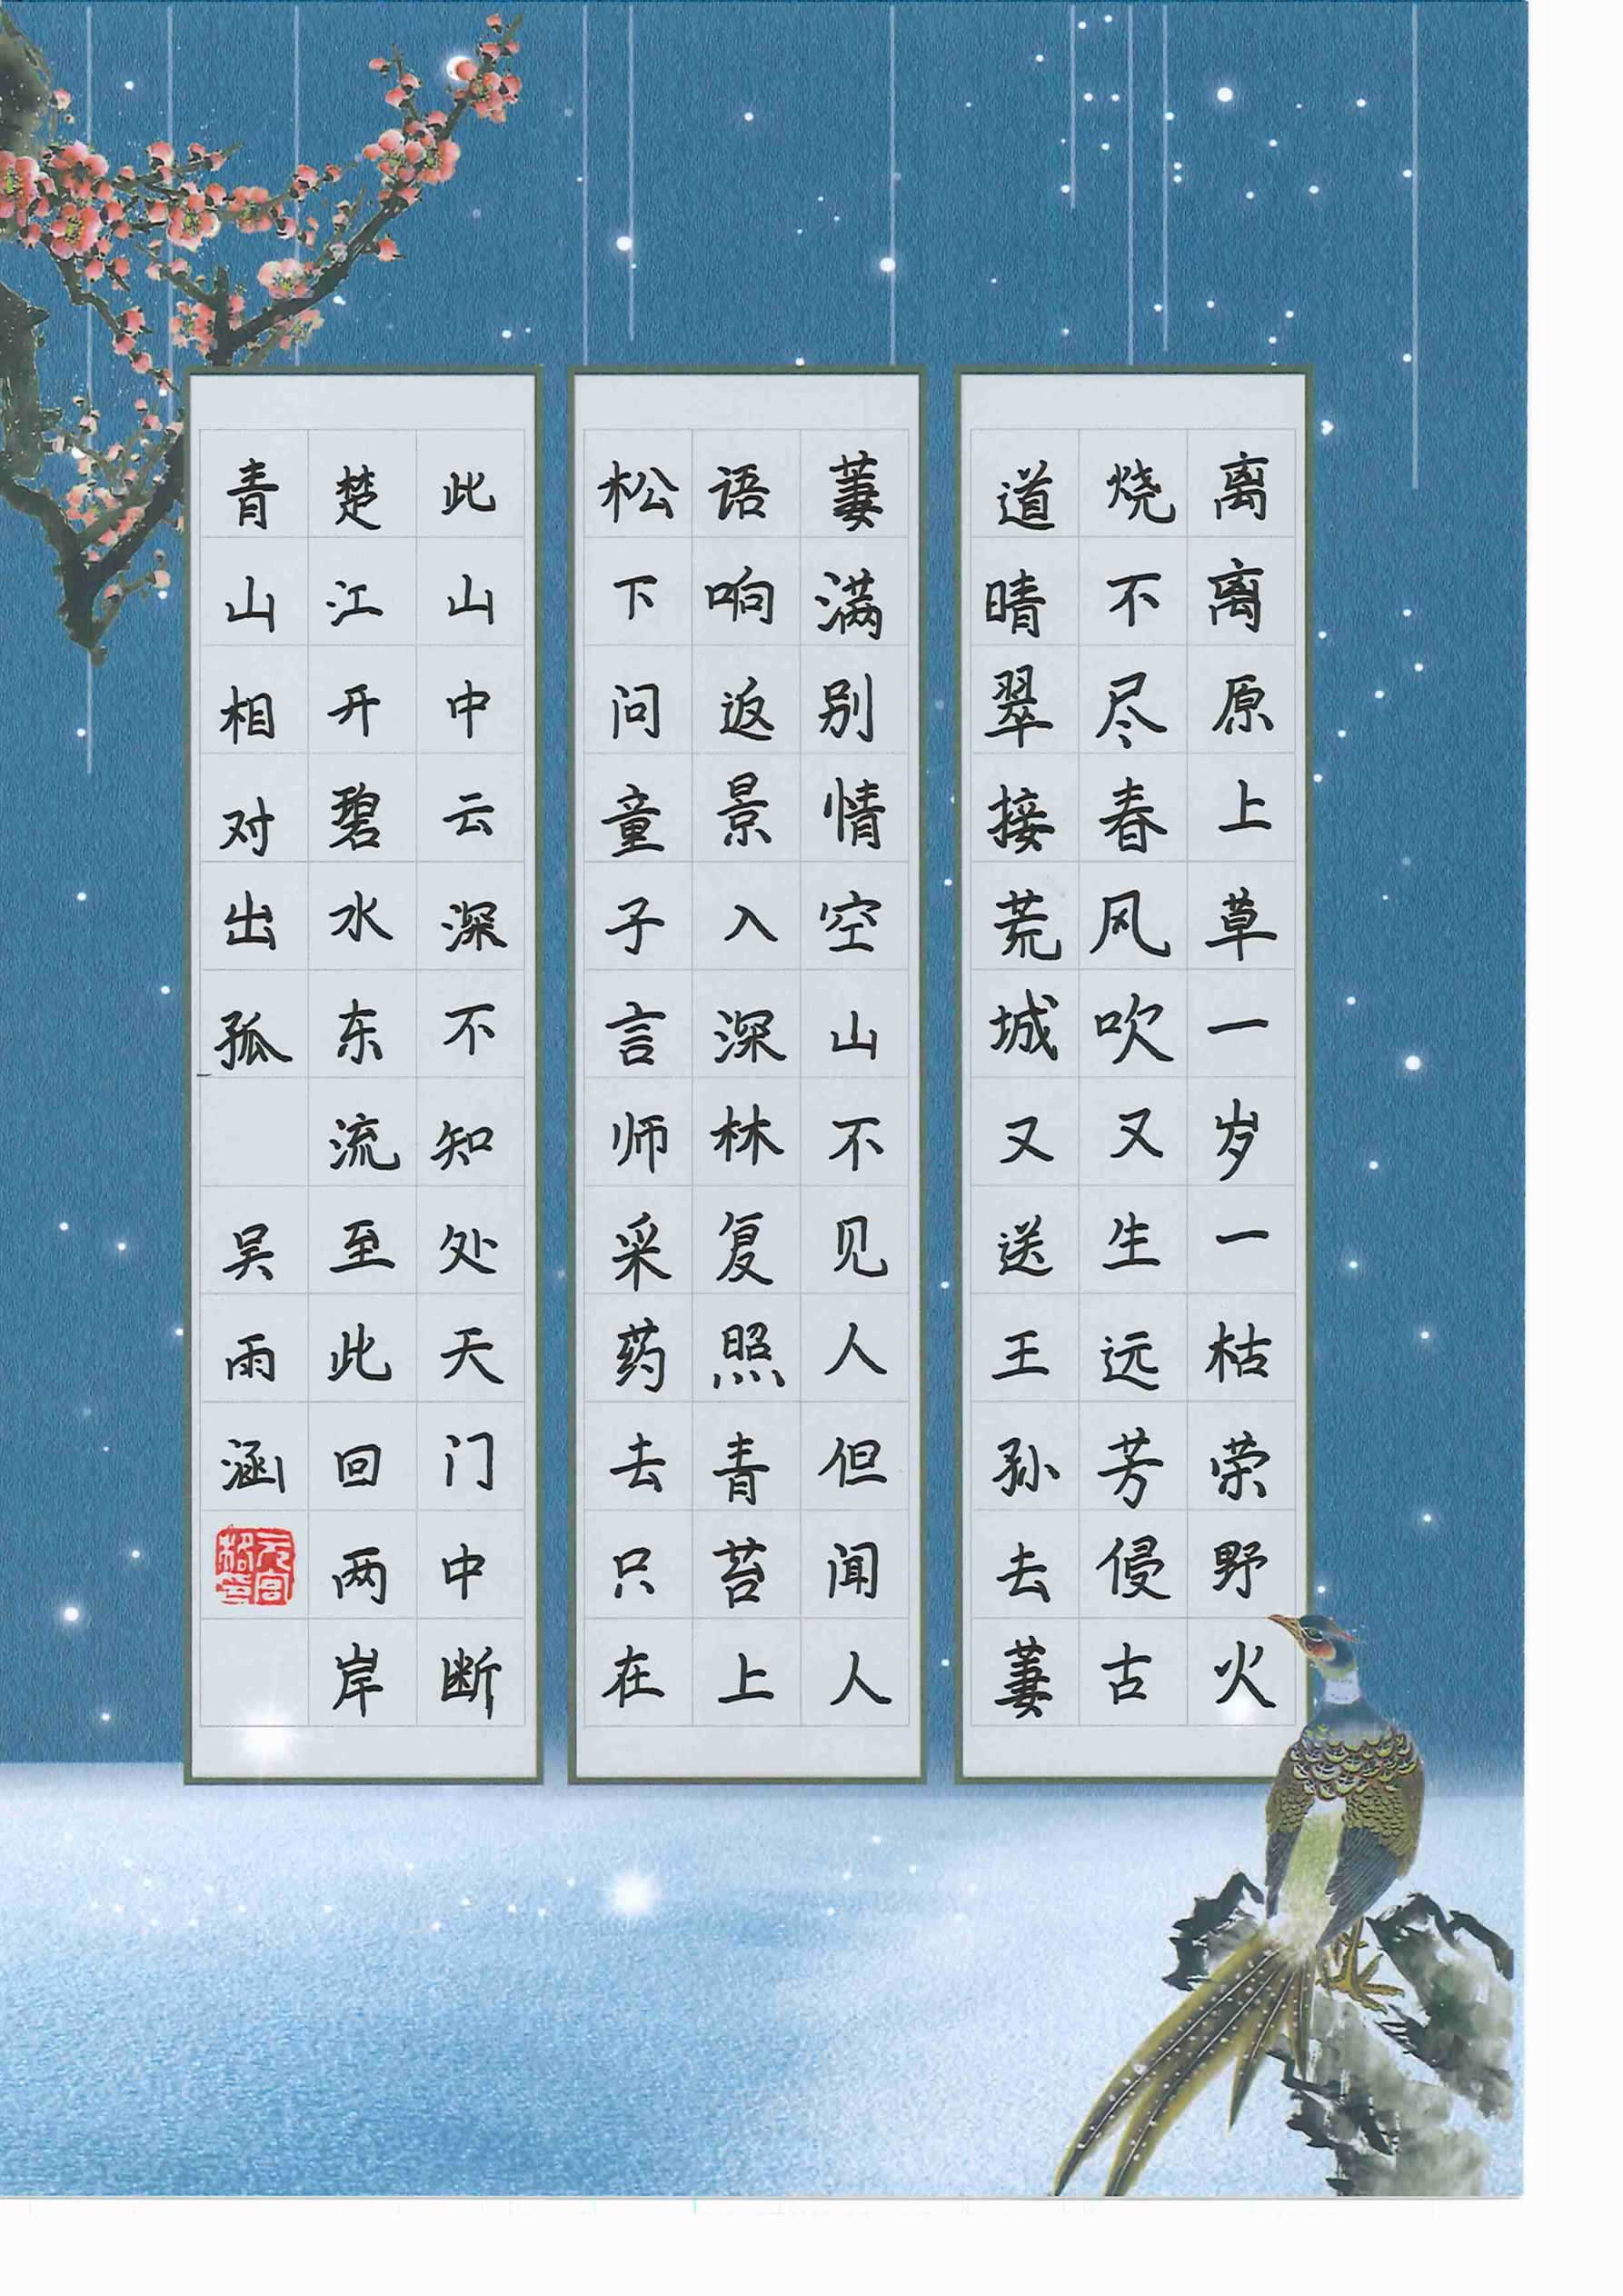 离离原上草一岁一枯荣野火
烧不尽春风吹又生远芳侵古
道晴翠接荒城又送王孙去萋
萋满别情空山不见人但闻人
语响返景入深林复照青苔上
松下问童子言师采药去只在
此山中云深不知处天门中断
楚江开碧水东流至此回两岸
青山相对出孤
吴雨涵